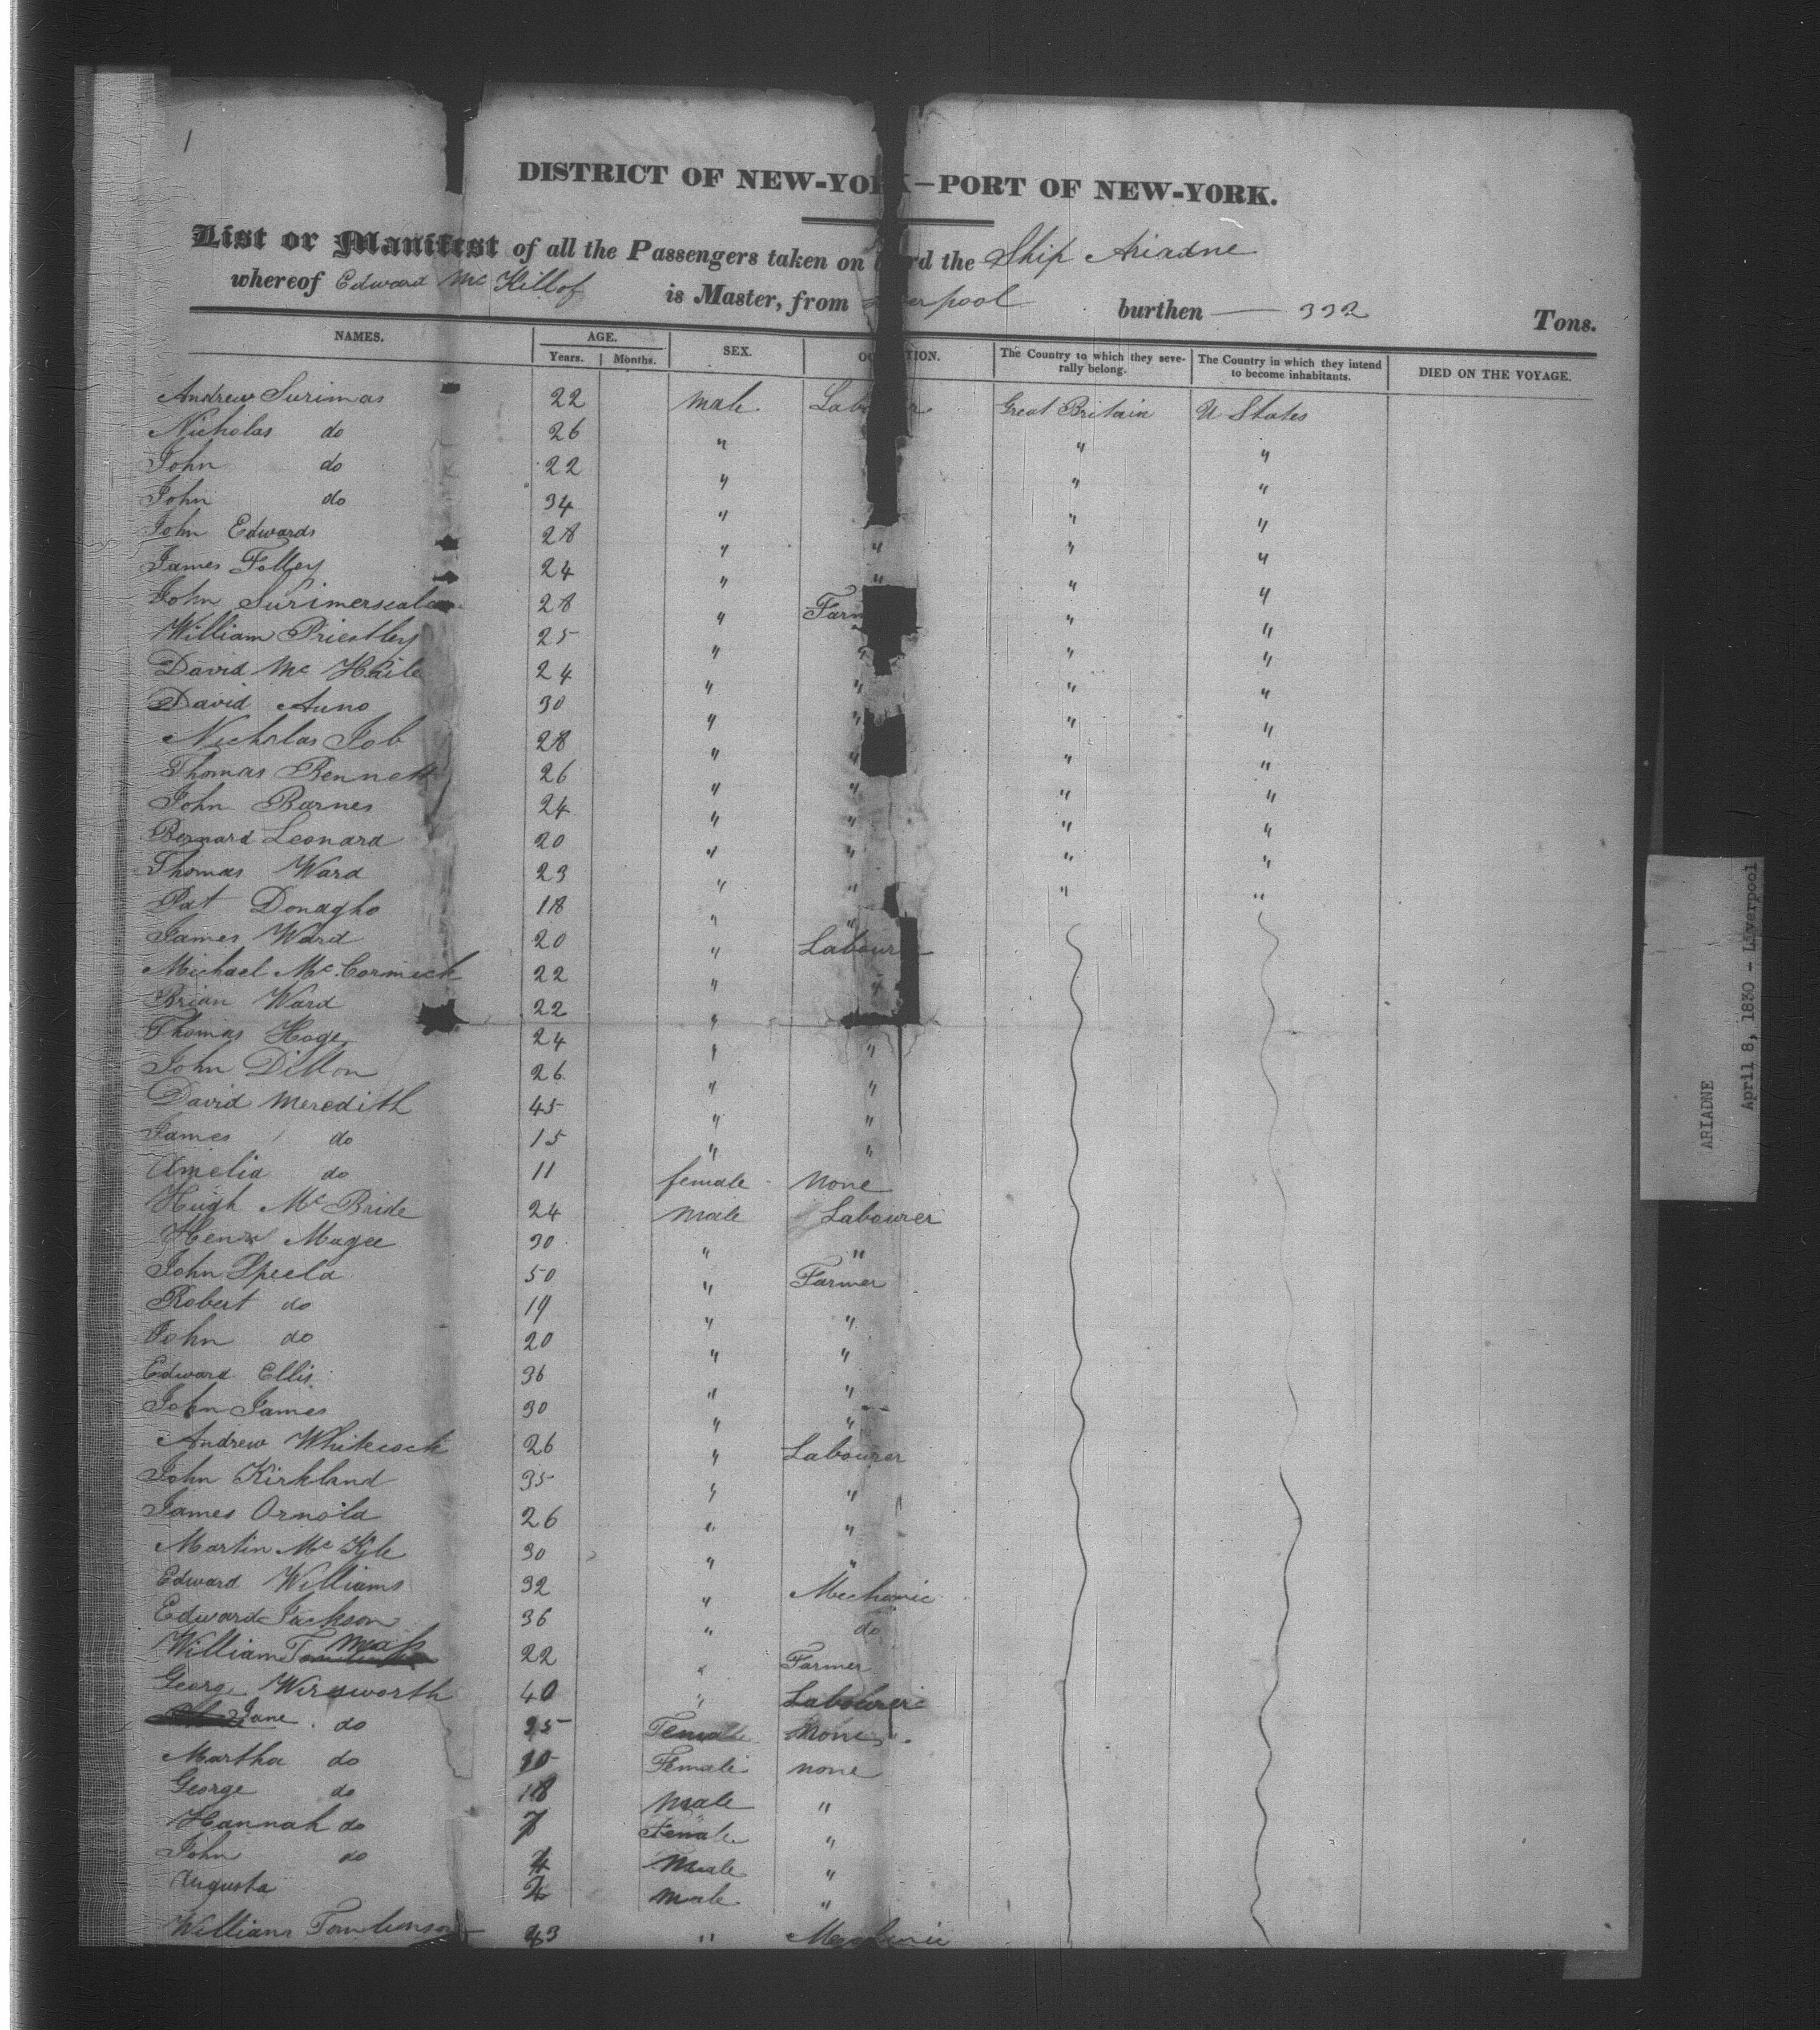 1
DISTRICT OF NEW-YORK-PORT OF NEW-YORK.
List or Manifest of all the Passengers taken on board the Ship Ariadne
whereof Edward Mc is Master, from Liverpool burthen — 332 Tons.
NAMES. AGE. SEX. OCCUPATION. The Country to which they severally belong. The Country in which they intend to become inhabitants. DIED ON THE VOYAGE.
Years. Months.
Andrew 22 male Labourer Great Britain U States
Nicholas do 26 " " "
John do 22 " " "
John do 34 " " "
John Edwards 28 " " " "
James 24 " " " "
John 28 " Farmer " "
William Priestley 25 " " " "
David Mc 24 " " " "
David 30 " " " "
Nicholas Job 28 " " " "
Thomas Bennett 26 " " " "
John Barnes 24 " " " "
Bernard Leonard 20 " " " "
Thomas Ward 23 " " " "
Pat Donagho 18 " "
James Ward 20 " Labourer
Michael Mc Cormick 22 " "
Brian Ward 22 "
Thomas 24 " "
John Dillon 26 " "
David Meredith 45 " "
James do 15 " "
Amelia do 11 female none
Hugh Mc Bride 24 male Labourer
Henry Magee 30 " "
John 50 " Farmer
Robert do 19 " "
John do 20 " "
Edward Ellis 36 " "
John James 30 " "
Andrew Whitecock 26 " Labourer
John Kirkland 35 " "
James Arnold 26 " "
Martin Mc Kyle 30 " "
Edward Williams 32 " Mechanic
Edward Jackson 36 " do
William 22 " Farmer
George Wirdsworth 40 " Labourer
Jane do 35 Female None
Martha do 10 Female none
George do 18 male "
Hannah do 7 Female "
John do 4 Male "
Augusta 2 male "
William Tomlinson 23 " Mechanic
ARIADNE
April 8, 1830 - Liverpool